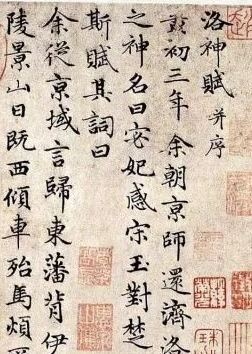 洛神賦 并序
黄初三年余朝京師還濟洛
之神名曰宓妃感宋玉對楚
斯賦其詞曰
余從京域言歸東藩背伊
陵景山日既西傾車殆馬煩